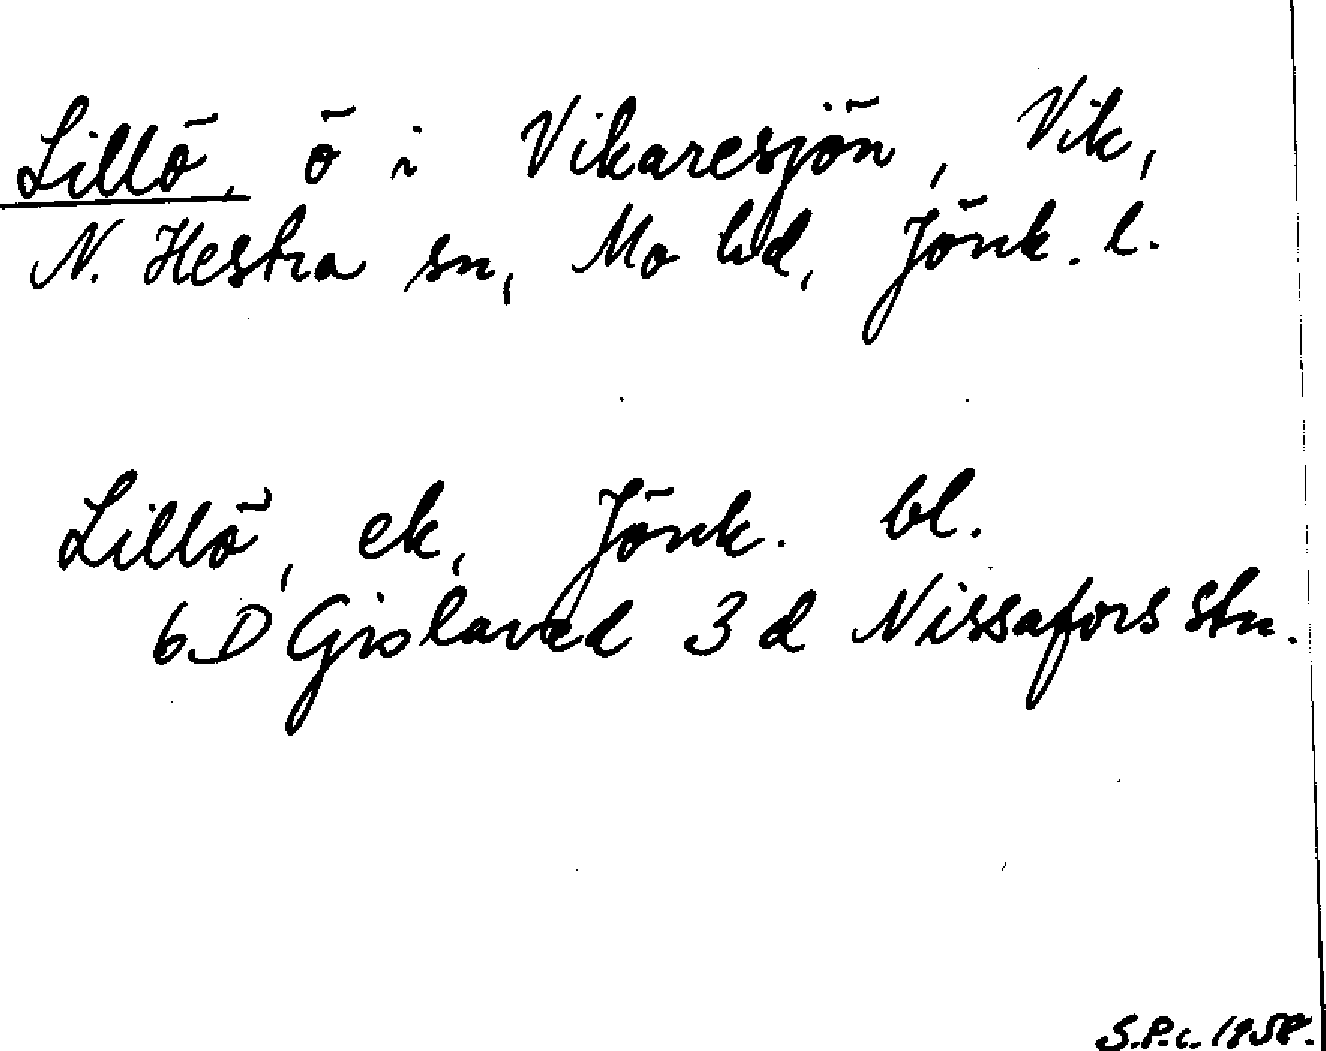 Lillö, ö i Vikaresjön, Vik,
N. Hestra sn, Mo hd, Jönk. l.
Lillö, ek, Jönk. bl.
6D Gislaved 3 d Nissafors stn.
S.P.c. 1958.